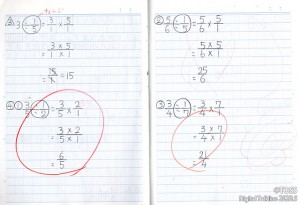 ③ 3 ÷ 1/5 = 3/1 × 5/1
= 3 × 5 / 1 × 1
= 15/1 = 15
④ ① 3/5 ÷ 1/2 = 3/5 × 2/1
= 3 × 2 / 5 × 1
= 6/5
② 5/6 ÷ 1/5 = 5/6 × 5/1
= 5 × 5 / 6 × 1
= 25/6
③ 3/4 ÷ 1/7 = 3/4 × 7/1
= 3 × 7 / 4 × 1
= 21/4
©TOSS